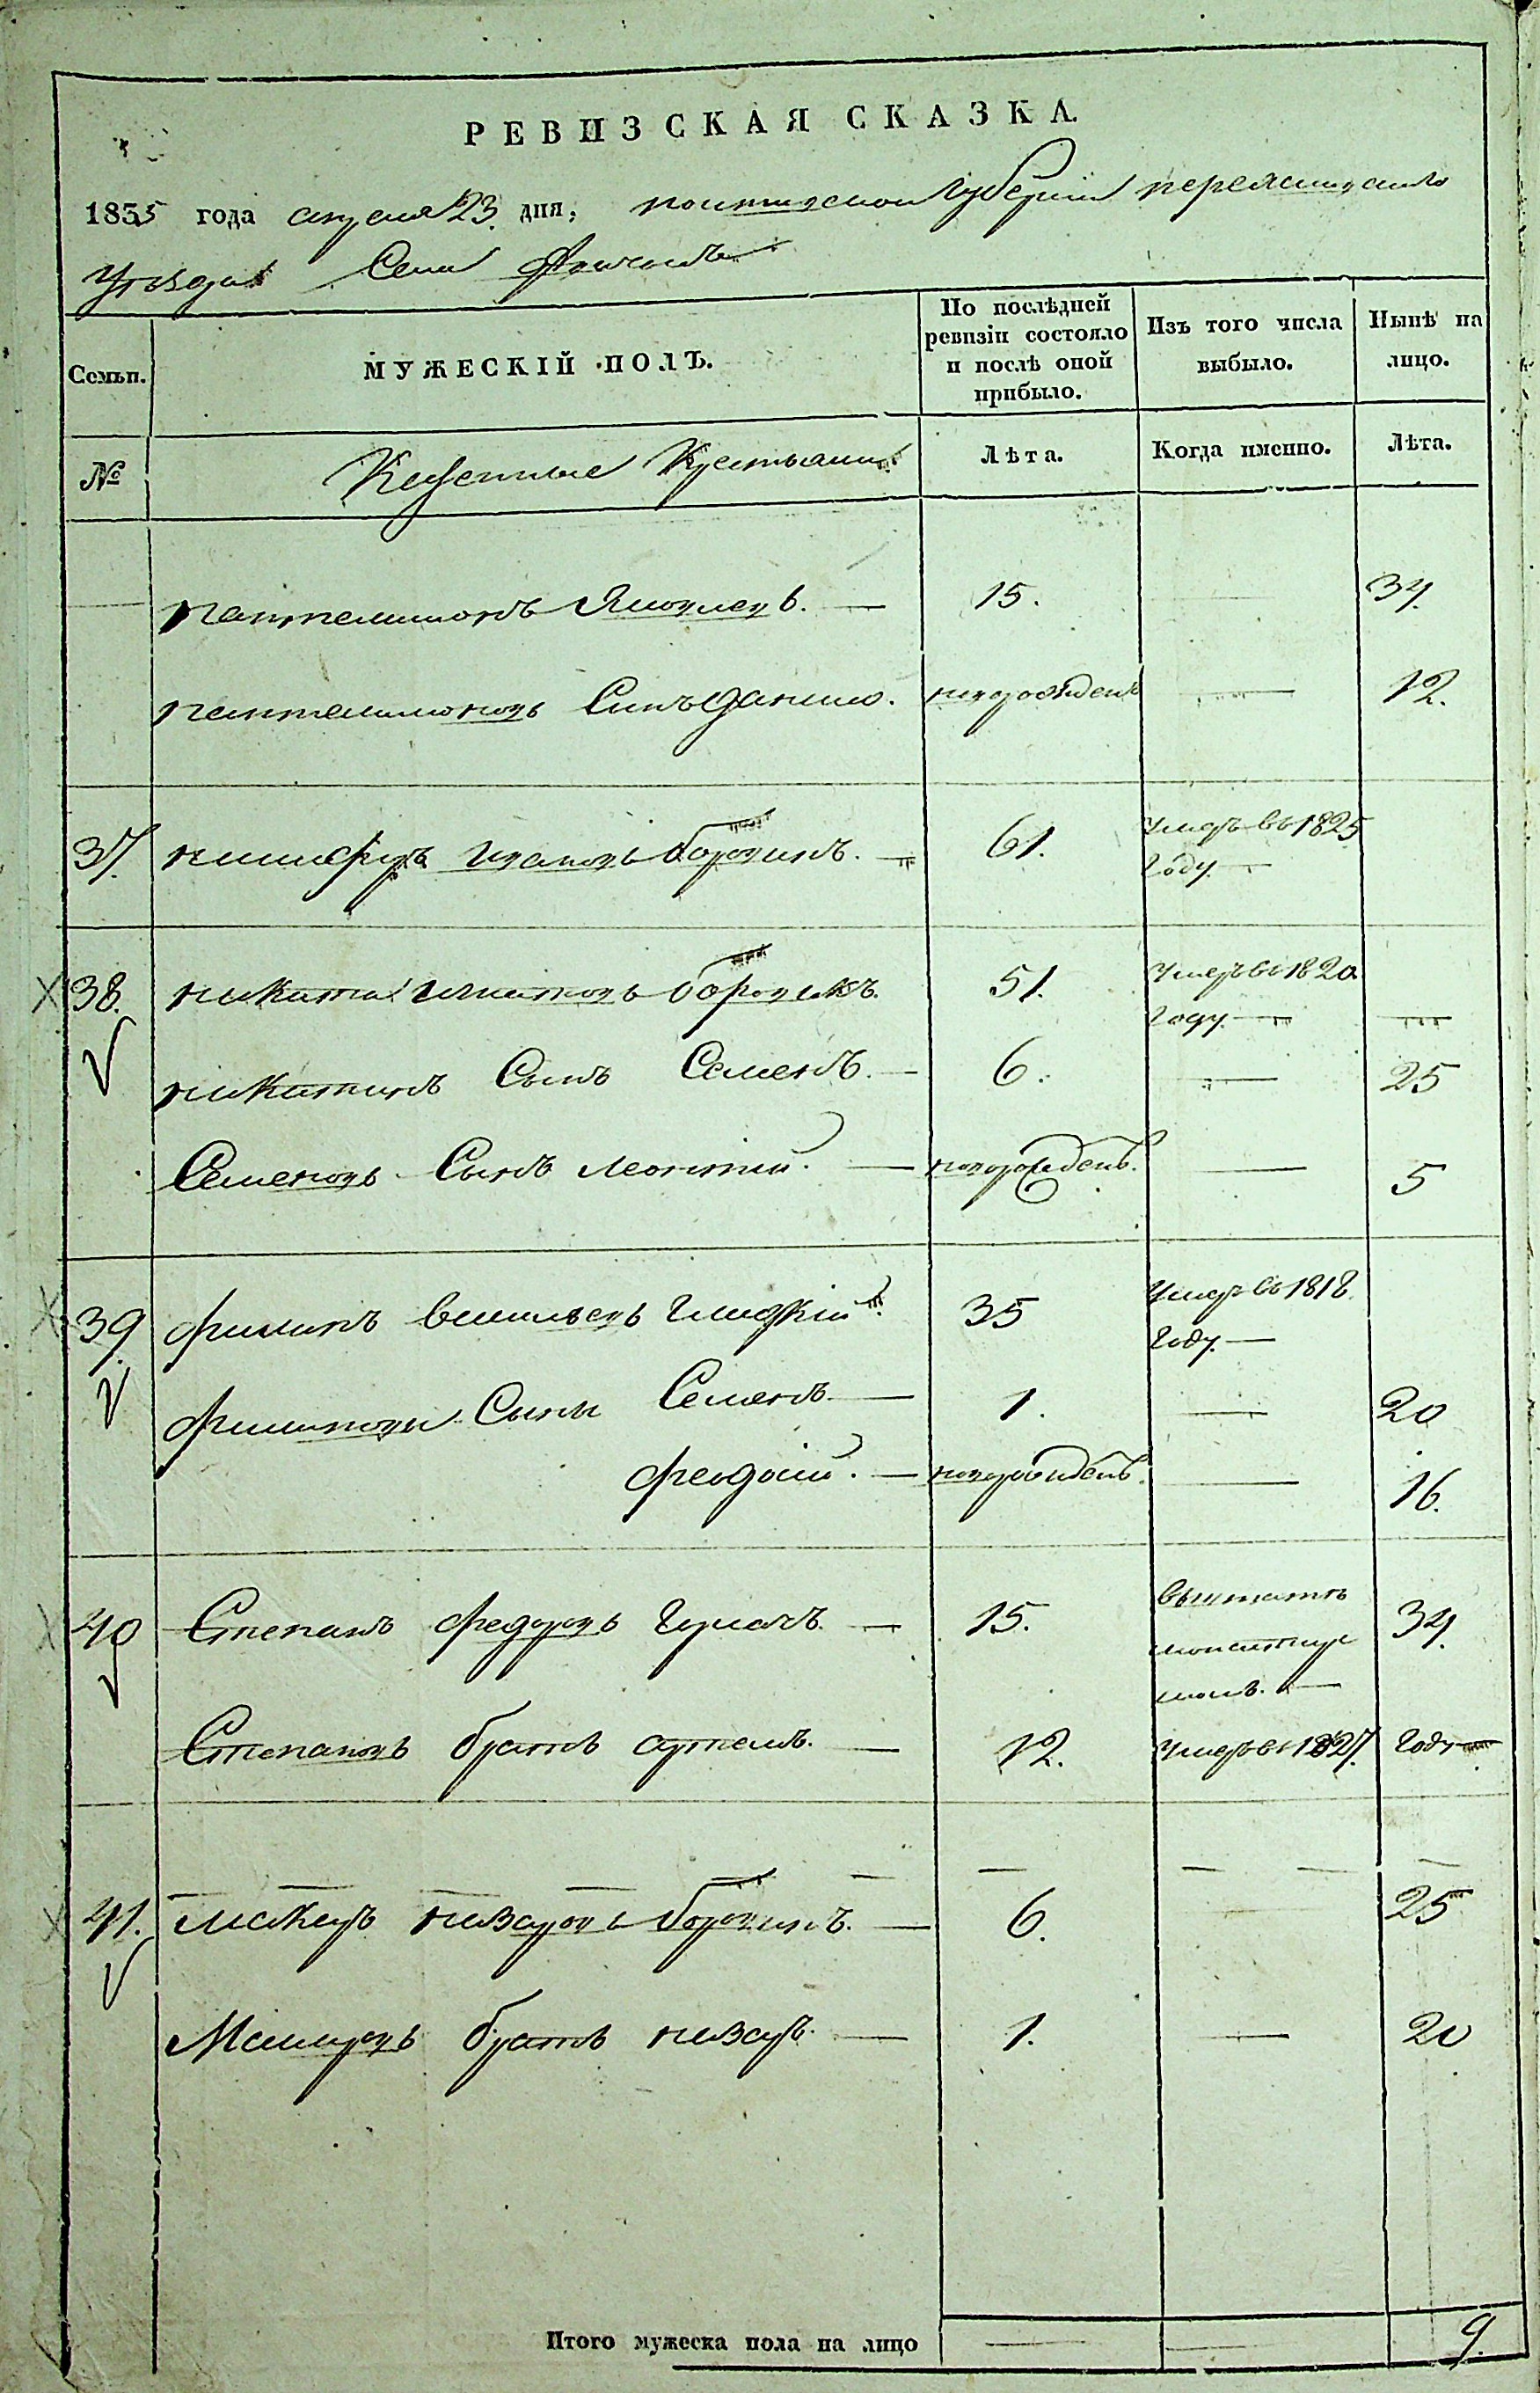 РЕВИЗСКАЯ СКАЗКА
1835 года апреля 23. дня, полтавской губернии переяславского
Уѣзда Села
Семьи.
МУЖЕСКІЙ ПОЛЪ.
По послѣдней ревизіи состояло и послѣ оной прибыло.
Изъ того числа выбыло.
Нынѣ на лицо.
№
Казенные Крестьяне
Лѣта.
Когда именно.
Лѣта.
пантелимонъ Яковлевъ. 15. 34.
пантелимоновъ Синъ данило. новорожденъ 12.
37. никифоръ ивановъ боровикъ. 61. умеръ въ 1825
году.
38. никита игнатовъ боровикъ. 51. умеръ въ 1820
году.
никитинъ Сынъ Семенъ. 6. 25
Семеновъ Сынъ леонтий. новорожденъ. 5
39. филипъ васильевъ гладкій. 35 умеръ въ 1818
году.
филиповы Сыны Семенъ 1. 20
феодосій. новорожденъ. 16.
40 Степанъ федоровъ 15. 34.
Степановъ братъ артемъ. 12. умеръ въ 1827. году
41. макаръ назаровъ боровикъ. 6. 25
Макаровъ братъ назаръ. 1. 20
Итого мужеска пола на лицо 9.